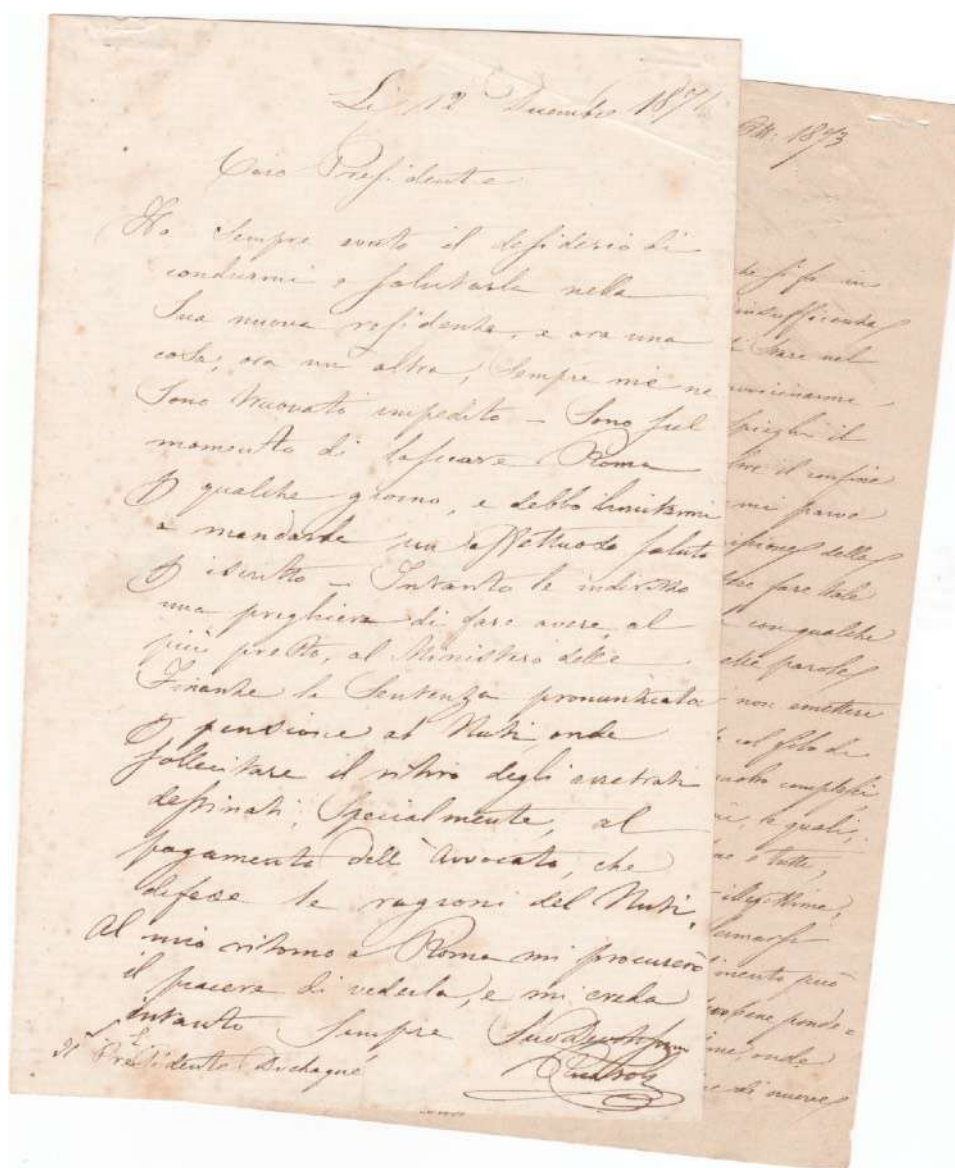 Li 12 Dicembre 1871
Caro Presidente
Ho sempre avuto il desiderio di
condurmi e salutarla nella
Sua nuova residenza, e ora una
cosa, ora un altra, sempre me ne
sono trovato impedito – Sono sul
momento di lasciare Roma
p qualche giorno, e debbo limitarmi
a mandarle un affettuoso saluto
p iscritto – Intanto le indirizzo
una preghiera di fare avere, al
più presto, al Ministero delle
Finanze la Sentenza pronunziata
p pensione al Nuti, onde
sollecitare il ritiro degli arretrati
destinati, specialmente, al
pagamento dell'Avvocato, che
difese le ragioni del Nuti.
Al mio ritorno a Roma mi procurerò
il piacere di vederla, e mi creda
intanto sempre
Presidente Duchoqué
1873
che si fa in
insufficienza
di stare nel
spieghi il
il confine
mi parve
della
fare tale
con qualche
parole
non emettere
col filo di
complessi
le quali,
e tutte,
illegittima,
fermarsi
può
onde
di nuove